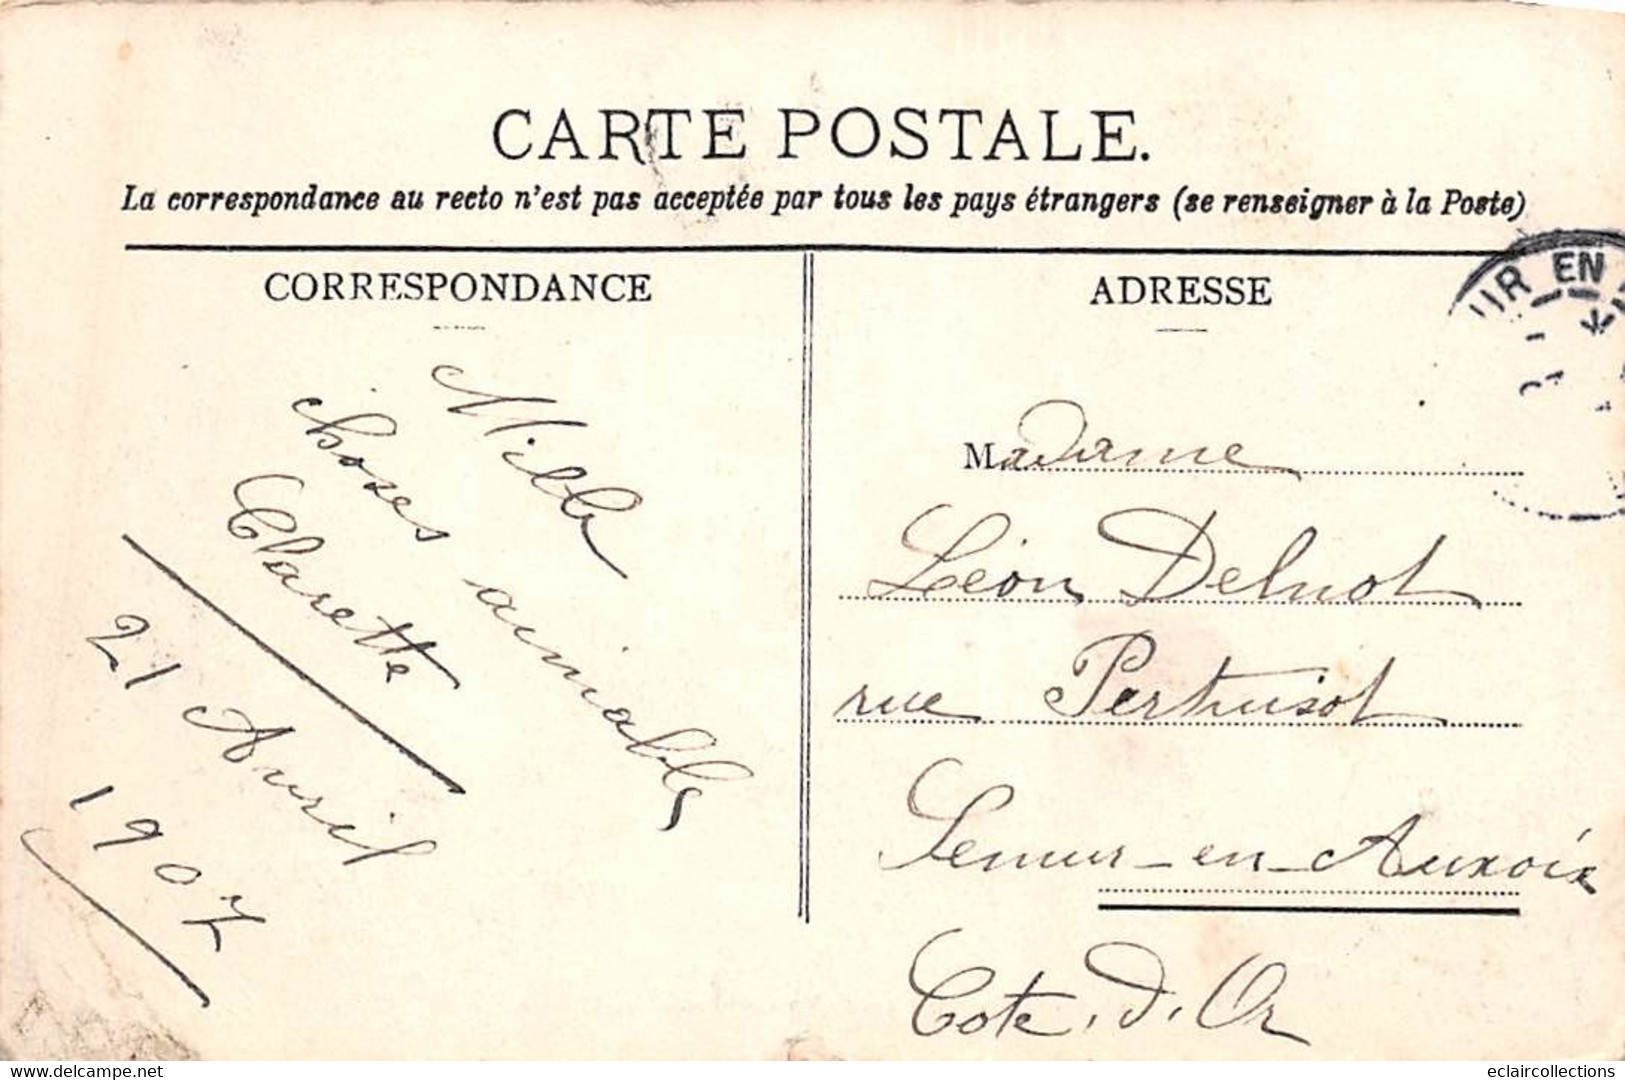 CARTE POSTALE.
La correspondance au recto n'est pas acceptée par tous les pays étrangers (se renseigner à la Poste)
CORRESPONDANCE
Mille
choses aimables
Clarette
21 Avril
1907
ADRESSE
Madame
Léon Delnot
rue Perthuisot
Semur-en-Auxois
Cote.d'Or
UR EN
www.delcampe.net
eclaircollections